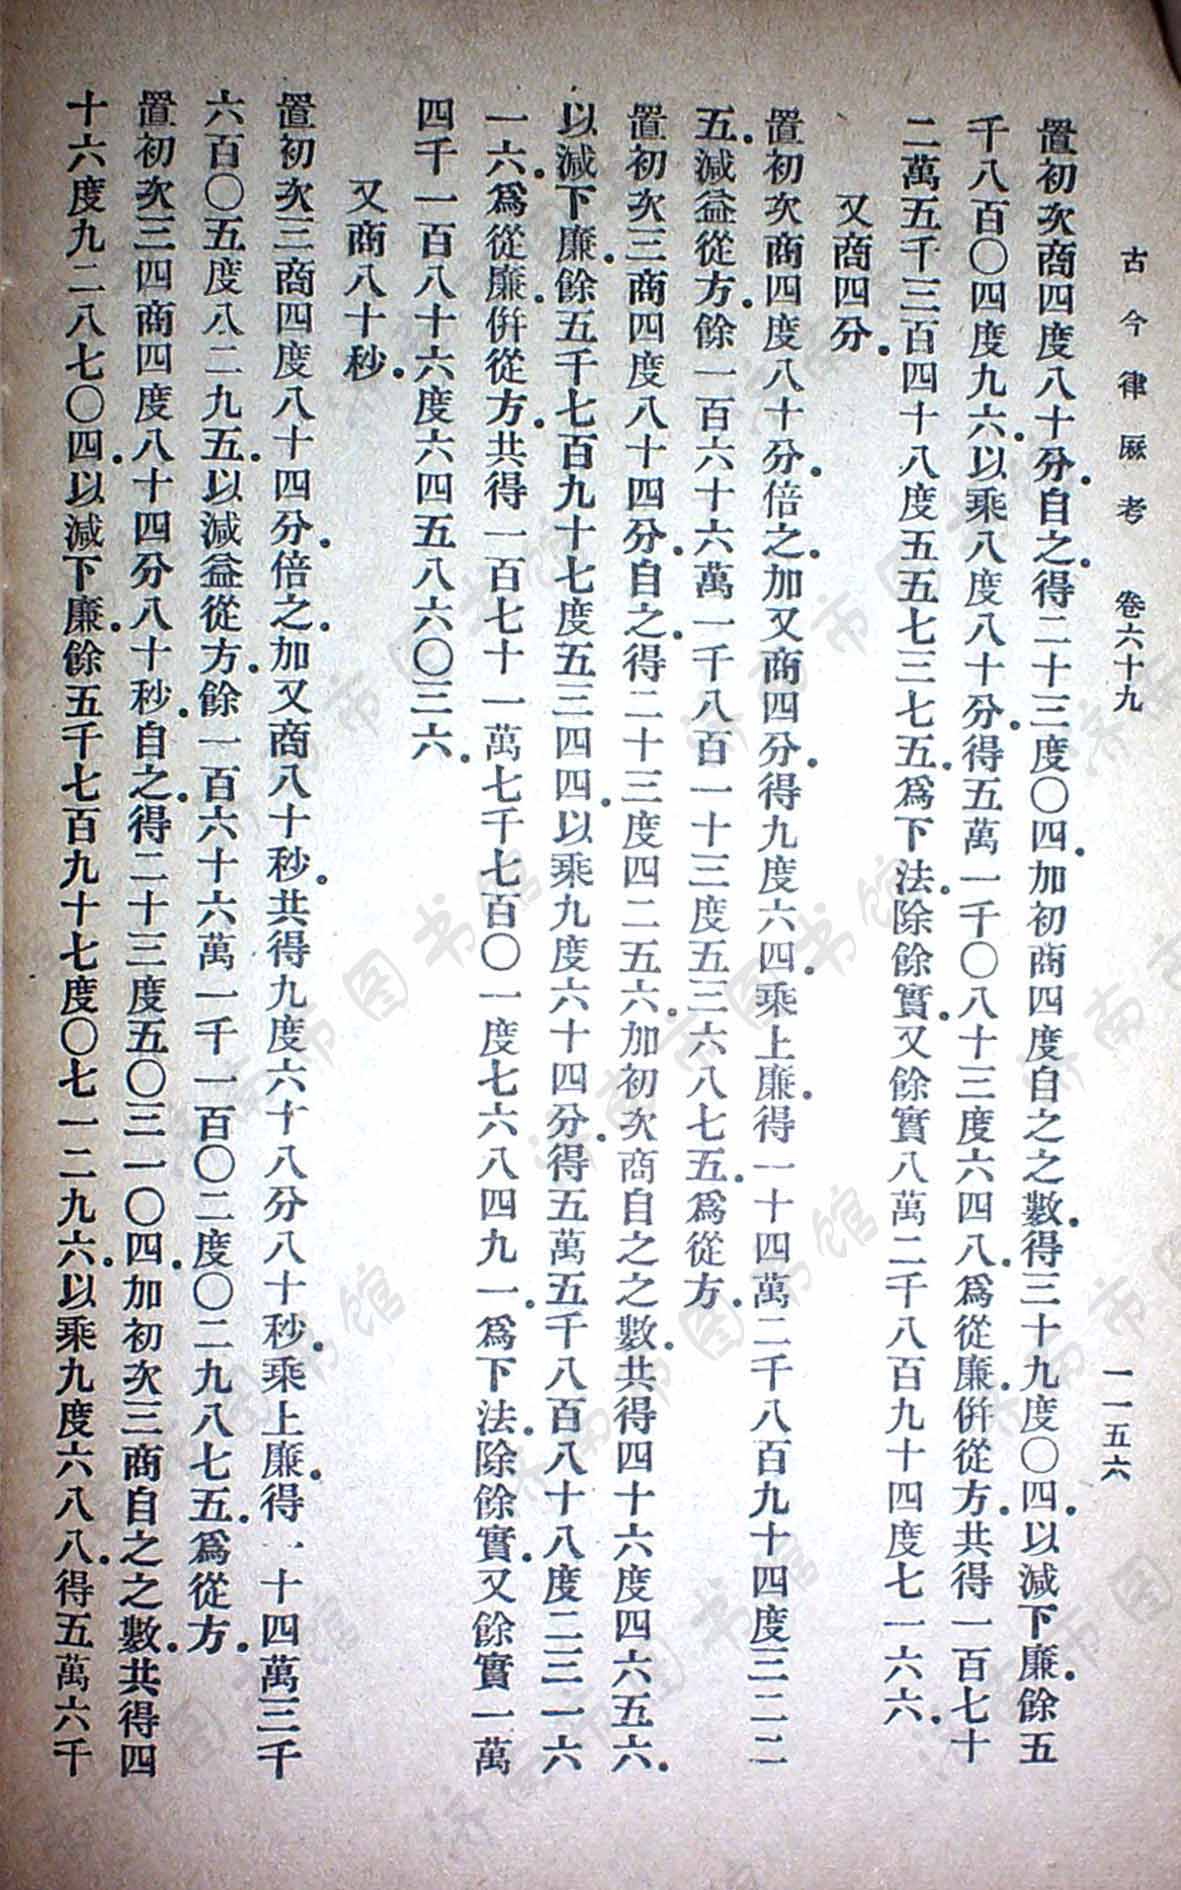 古今律厤考　卷六十九　一一五六
置初次商四度八十分。自之。得二十三度〇四。加初商四度自之之數。得三十九度〇四。以減下廉。餘五
千八百〇四度九六。以乘八度八十分。得五萬一千〇八十三度六四八。爲從廉。倂從方。共得一百七十
二萬五千三百四十八度五五七三七五。爲下法。除餘實。又餘實八萬二千八百九十四度七一六六。
又商四分。
置初次商四度八十分。倍之。加又商四分。得九度六四。乘上廉。得一十四萬二千八百九十四度三二二
五。減益從方。餘一百六十六萬一千八百一十三度五三六八七五。爲從方。
置初次三商四度八十四分。自之。得二十三度四二五六。加初次商自之之數。共得四十六度四六五六。
以減下廉。餘五千七百九十七度五三四四。以乘九度六十四分。得五萬五千八百八十八度二三一六
一六。爲從廉。倂從方。共得一百七十一萬七千七百〇一度七六八四九一。爲下法。除餘實。又餘實一萬
四千一百八十六度六四五八六〇三六。
又商八十秒。
置初次三商四度八十四分。倍之。加又商八十秒。共得九度六十八分八十秒。乘上廉。得一十四萬三千
六百〇五度八二九五。以減益從方。餘一百六十六萬一千一百〇二度〇二九八七五。爲從方。
置初次三四商四度八十四分八十秒。自之。得二十三度五〇三一〇四。加初次三商自之之數。共得四
十六度九二八七〇四。以減下廉。餘五千七百九十七度〇七一二九六。以乘九度六八八。得五萬六千